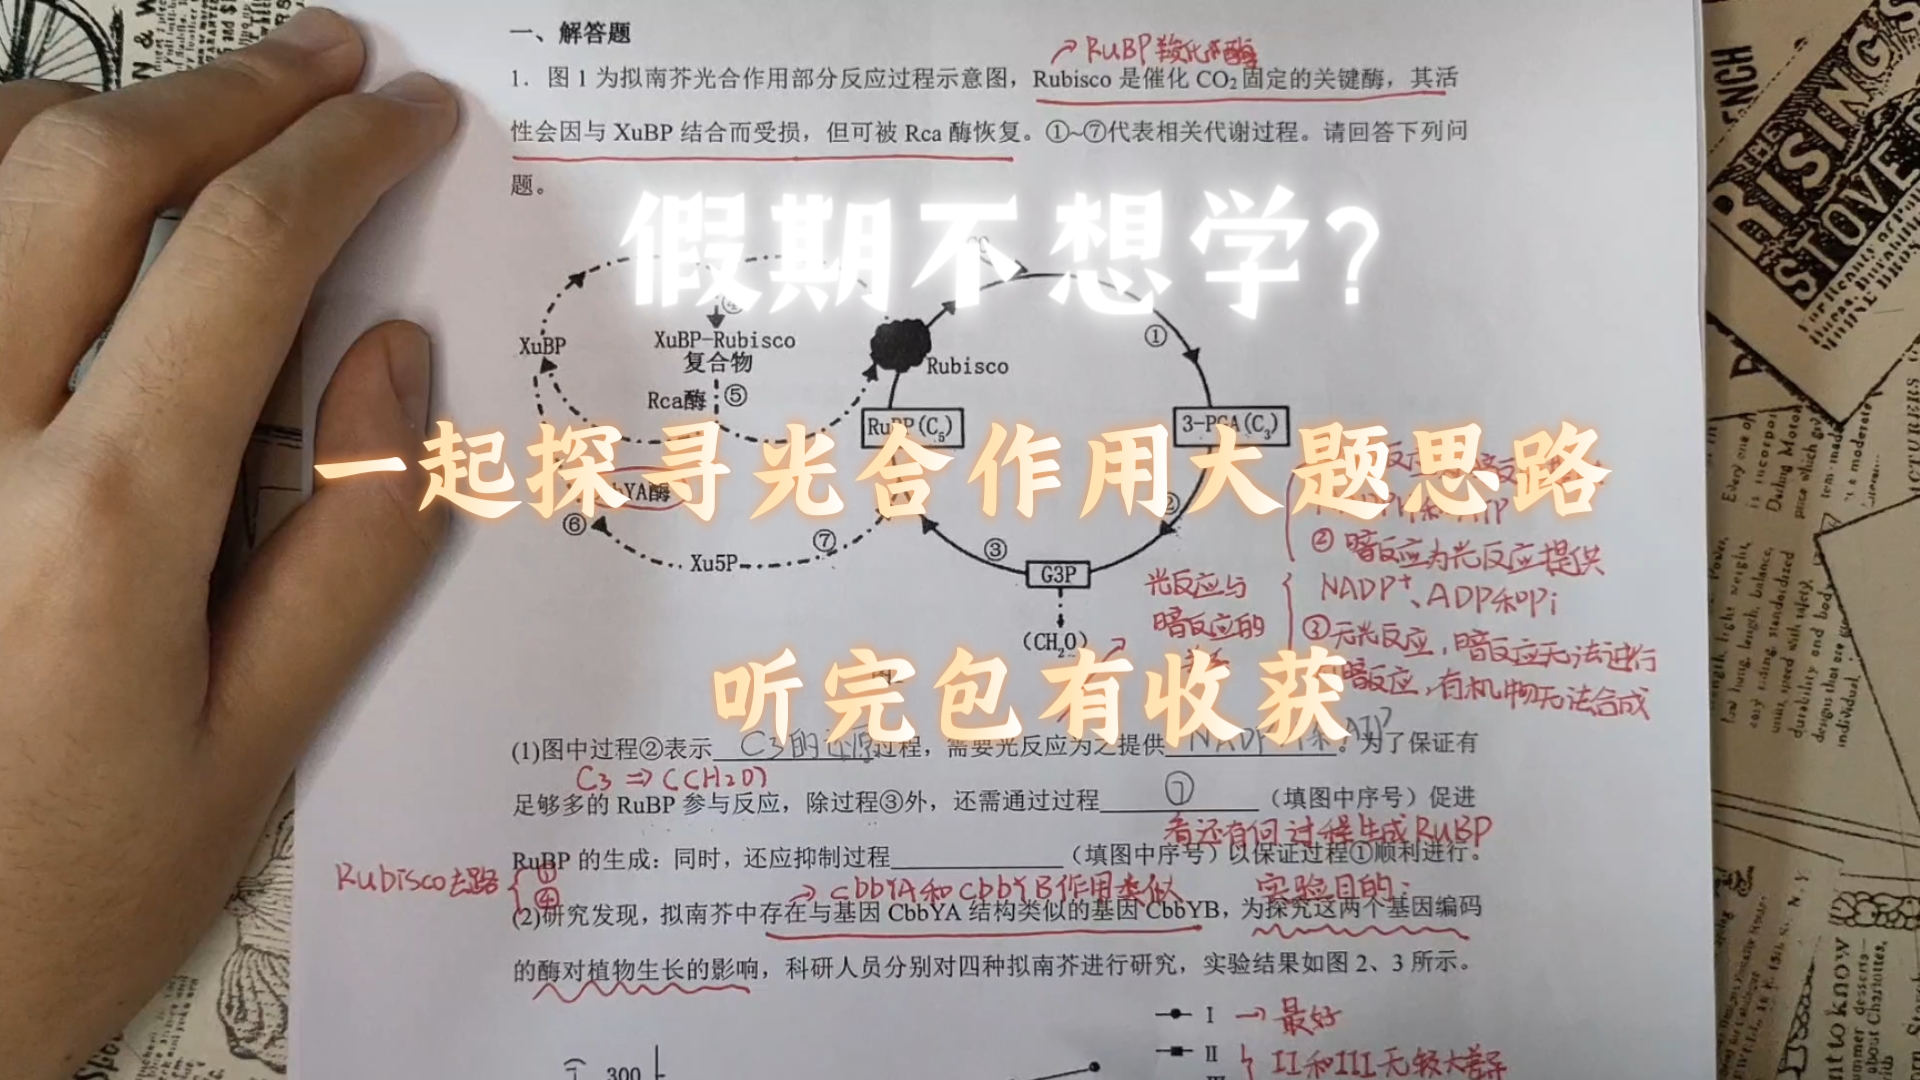 一、解答题
RuBP羧化酶
1. 图 1 为拟南芥光合作用部分反应过程示意图，Rubisco 是催化 CO₂ 固定的关键酶，其活
性会因与 XuBP 结合而受损，但可被 Rca 酶恢复。①~⑦代表相关代谢过程。请回答下列问
题。
假期不想学?
XuBP
XuBP-Rubisco
复合物
Rca酶
⑤
Rubisco
①
RuBP(C₅)
3-PGA(C₃)
一起探寻光合作用大题思路
YA酶
②
⑥
Xu5P
⑦
③
G3P
(CH₂O)
光反应与
暗反应的
②暗反应为光反应提供
NADP⁺、ADP和Pi
③无光反应，暗反应无法进行
暗反应，有机物无法合成
听完包有收获
(1)图中过程②表示 C3的还原 过程，需要光反应为之提供 NADPH和ATP 。为了保证有
C3 ⇒ (CH2O)
足够多的 RuBP 参与反应，除过程③外，还需通过过程 ⑦ （填图中序号）促进
看还有何过程生成RUBP
RuBP 的生成：同时，还应抑制过程（填图中序号）以保证过程①顺利进行。
Rubisco去路
①
④
→ cbbYA和cbbYB作用类似
实验目的:
(2)研究发现，拟南芥中存在与基因 CbbYA 结构类似的基因 CbbYB，为探究这两个基因编码
的酶对植物生长的影响，科研人员分别对四种拟南芥进行研究，实验结果如图 2、3 所示。
I → 最好
II
II和III无较大差异
300